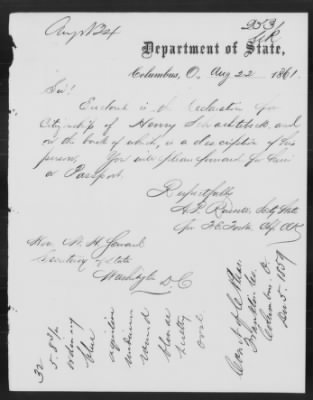 Department of State,
Columbus, O. Aug 22 1861.
Sir!
Enclosed is the Declaration for
Citizenship of Henry and,
on the back of which, is a description of his
person, You will please forward for him
a Passport.
Respectfully
A. P. Russell, Secty State
Hon. W. H. Seward
Secretary of State
Washington D.C
32
5. 8½
ordinary
blue
aquiline
medium
round
blonde
healthy
oval
Court of C Pleas
Franklin Co.
Columbus. O.
Dec 5. 1859